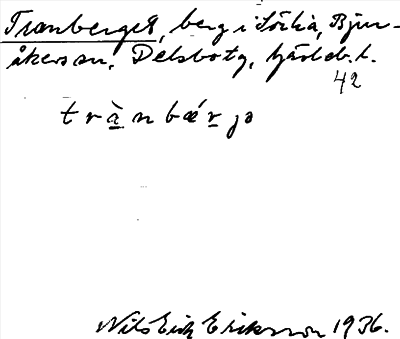 Tranberget, berg i Sörlia, Bjur-
åkers sn, Delsbo tg, Gävleb. l.
42
trà̲nbǽr̲jə
Nils Erik Eriksson 1936.